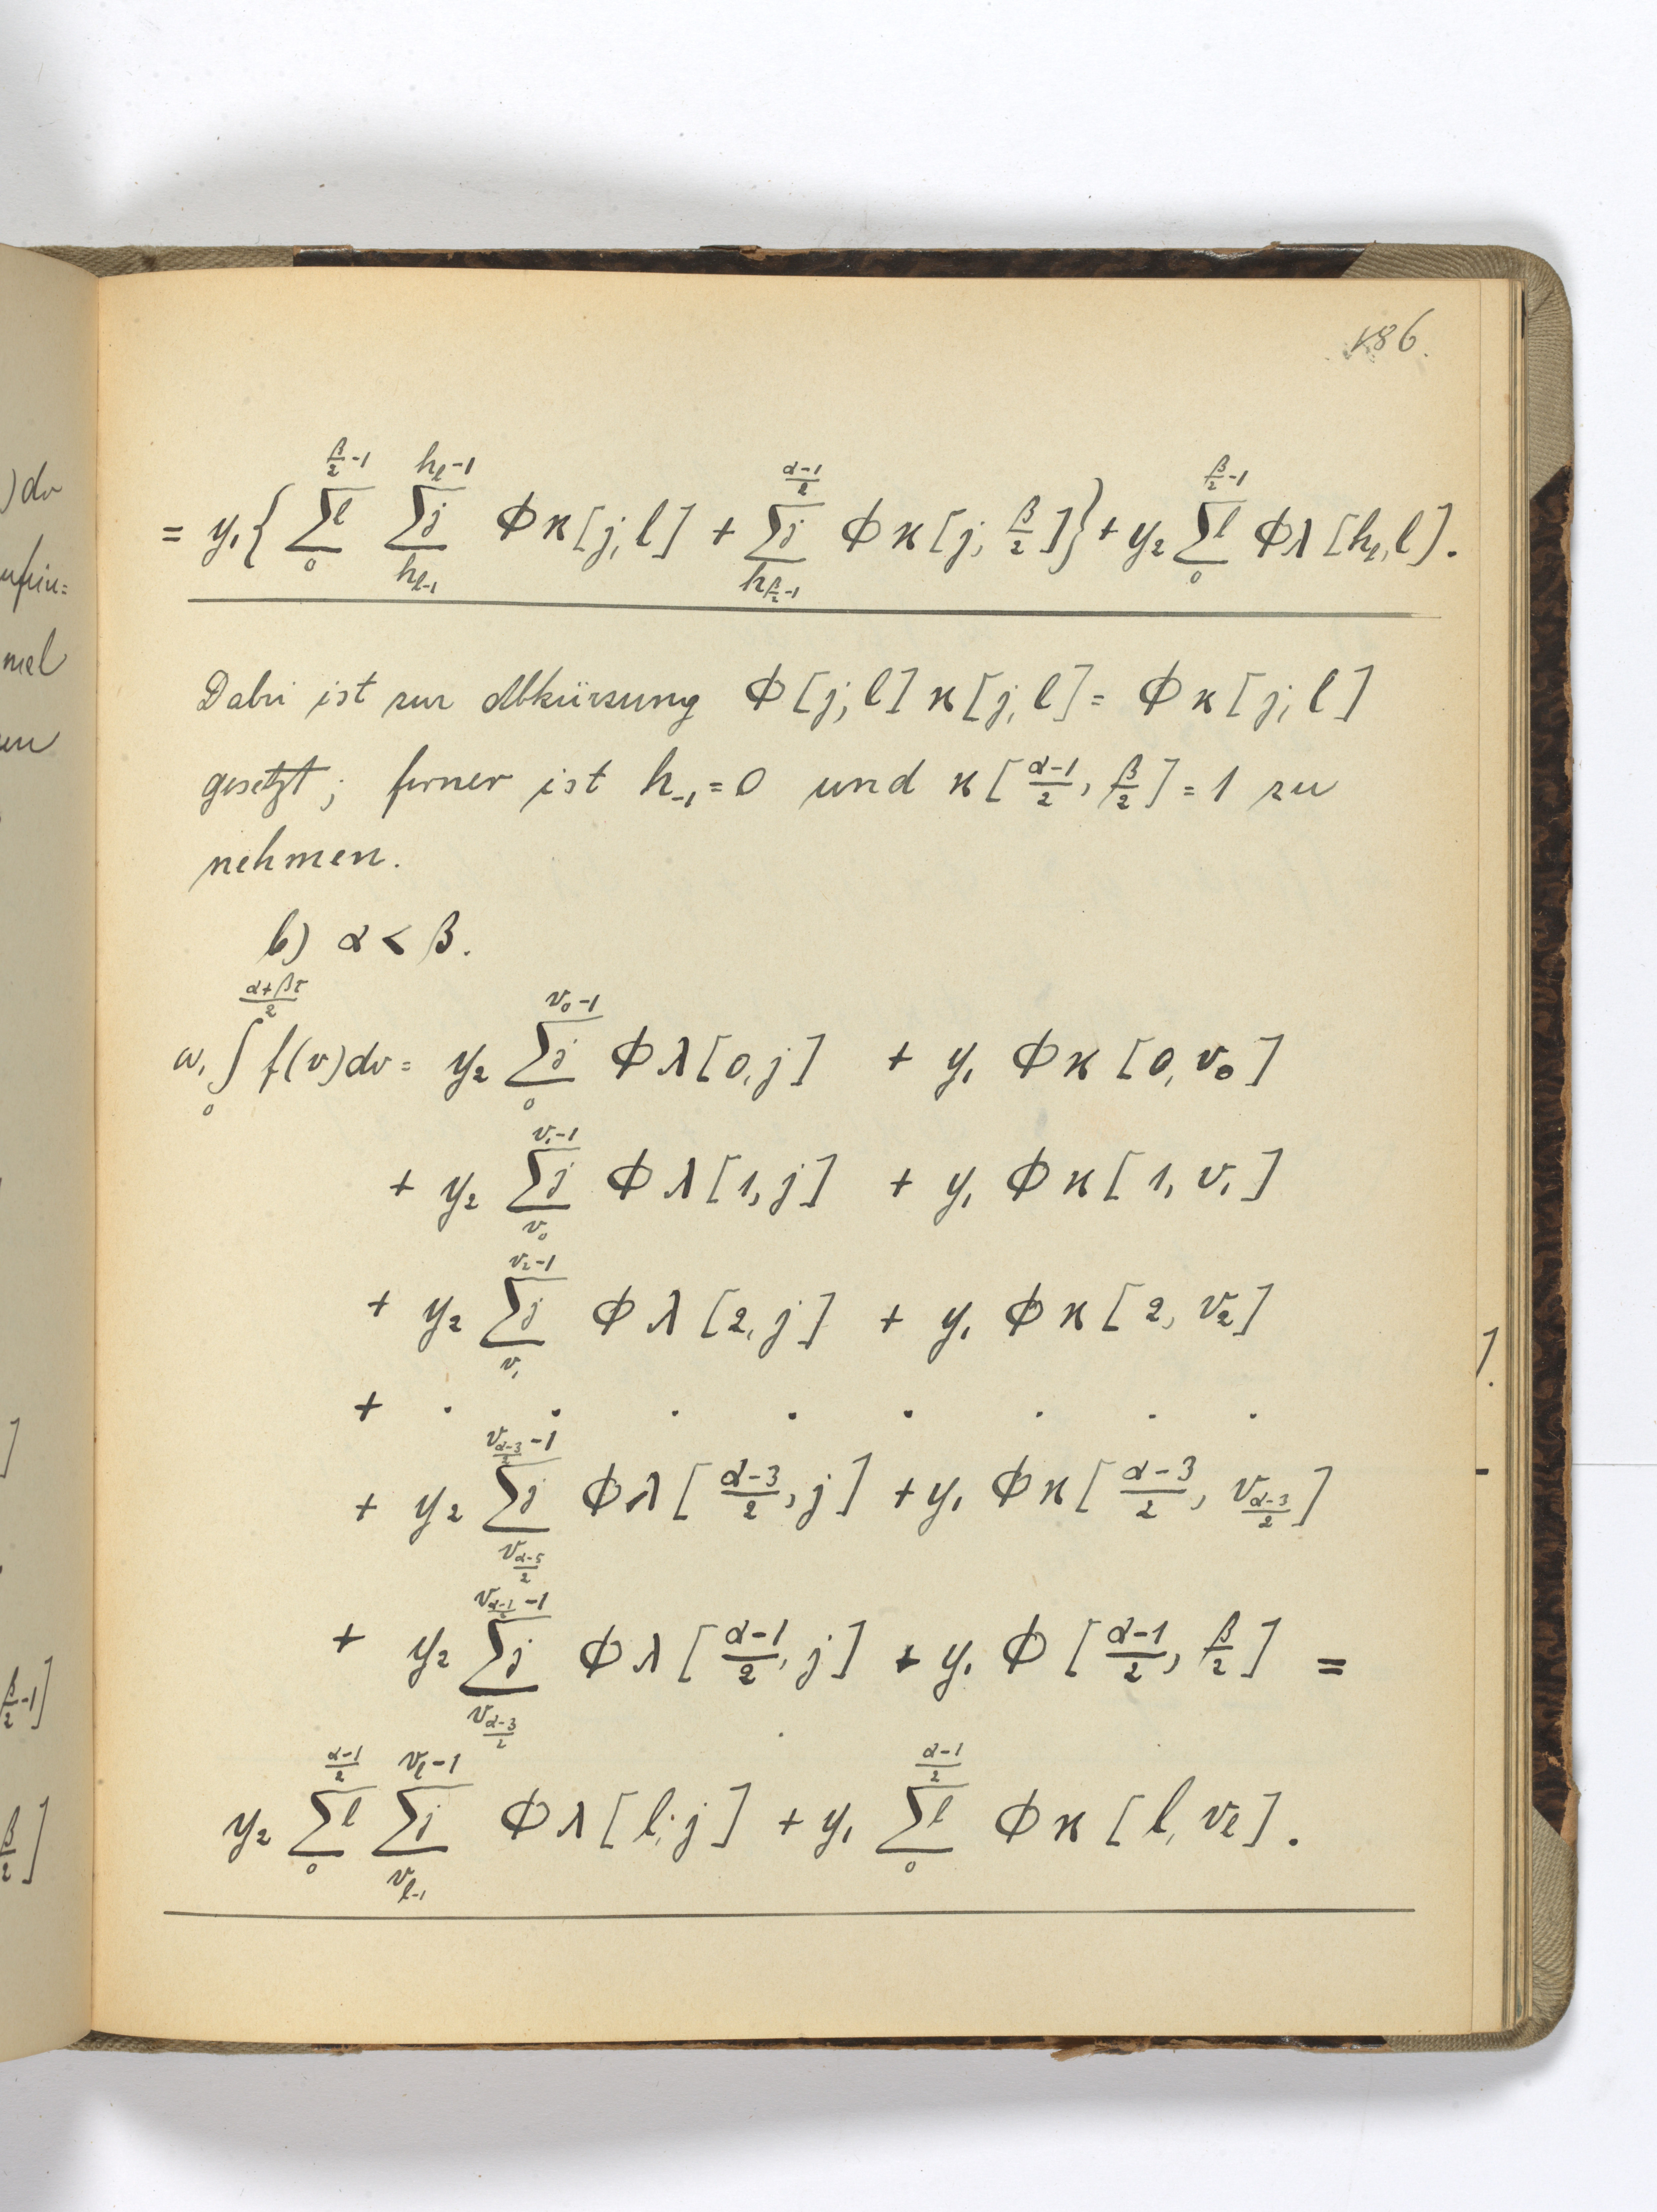 186.
= y₁{ \sum_{0}^{\frac{β}{2}-1} l \sum_{h_{l-1}}^{h_l-1} j ϕκ[j, l] + \sum_{h_{\frac{β}{2}-1}}^{\frac{α-1}{2}} j ϕκ[j, \frac{β}{2}] } + y₂ \sum_{0}^{\frac{β}{2}-1} l ϕλ[h_l, l].
Dabei ist zur Abkürzung ϕ[j, l] κ[j, l] = ϕκ[j, l]
gesetzt; ferner ist h_{-1} = 0 und κ[\frac{α-1}{2}, \frac{β}{2}] = 1 zu
nehmen.
b) α < β.
ω₁ \int_{0}^{\frac{α+βτ}{2}} f(v)dv = y₂ \sum_{0}^{v_0-1} j ϕλ[0, j] + y₁ ϕκ[0, v₀]
+ y₂ \sum_{v_0}^{v_1-1} j ϕλ[1, j] + y₁ ϕκ[1, v₁]
+ y₂ \sum_{v_1}^{v_2-1} j ϕλ[2, j] + y₁ ϕκ[2, v₂]
+ . . . . . . . .
+ y₂ \sum_{v_{\frac{α-5}{2}}}^{v_{\frac{α-3}{2}}-1} j ϕλ[\frac{α-3}{2}, j] + y₁ ϕκ[\frac{α-3}{2}, v_{\frac{α-3}{2}}]
+ y₂ \sum_{v_{\frac{α-3}{2}}}^{v_{\frac{α-1}{2}}-1} j ϕλ[\frac{α-1}{2}, j] + y₁ ϕ[\frac{α-1}{2}, \frac{β}{2}] =
y₂ \sum_{0}^{\frac{α-1}{2}} l \sum_{v_{l-1}}^{v_l-1} j ϕλ[l, j] + y₁ \sum_{0}^{\frac{α-1}{2}} l ϕκ[l, v_l].